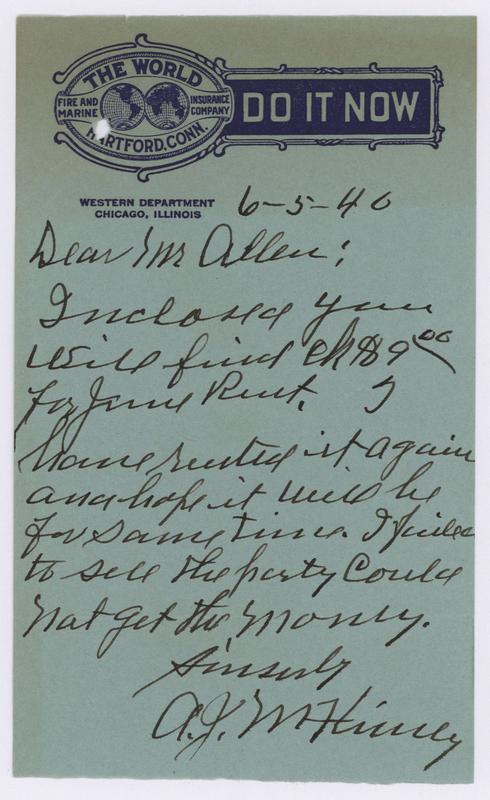 THE WORLD
FIRE AND MARINE
INSURANCE COMPANY
HARTFORD.CONN.
DO IT NOW
WESTERN DEPARTMENT
CHICAGO, ILLINOIS
6-5-40
Dear Mr Allen:
Inclosed you
will find ck $9 00
for June Rent. I
have rented it again
and hope it will be
for sometime. I failed
to sell the party could
not get the money.
Sinserly
A.J. McKinney